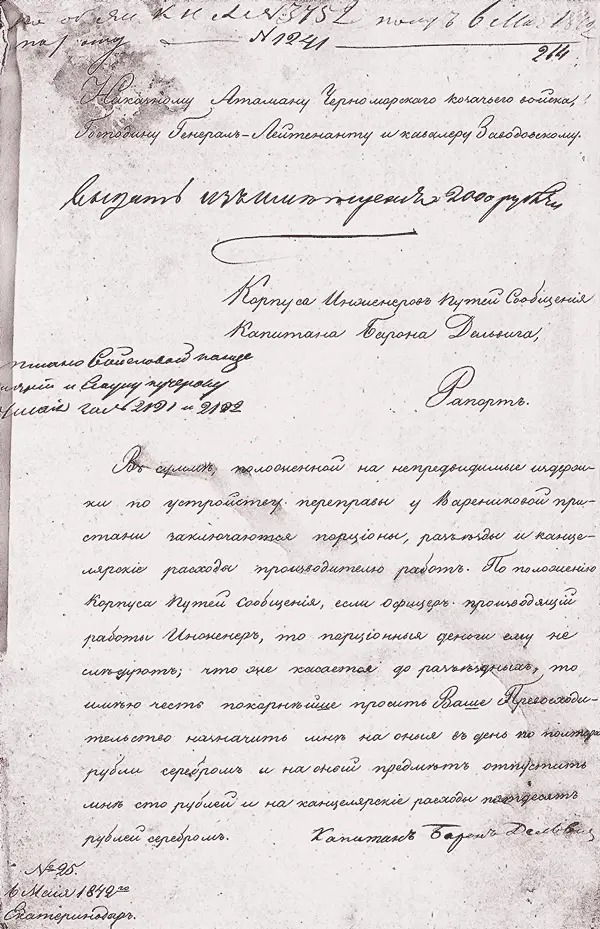 № 1241
214
Наказному Атаману Черноморскаго козачьего войска,
Господину Генералъ-Лейтенанту и кавалеру Заводовскому.
Выдать 200 рублей
Корпуса Инженеровъ Путей Сообщенія
Капитана Барона Дельвига,
и
2191 и 2192
Рапортъ.
Въ суммѣ, положенной на непредвидимые издерж-
ки по устройству переправы уВарениковой при-
стани заключаются порціоны, разъѣзды и канце-
лярскіе расходы производителю работъ. По положенію
Корпуса Путей Сообщенія, если Офицеръ производящій
работы Инженеръ, то порціонныя деньги ему не
слѣдуютъ; что же касается до разъѣздныхъ, то
имѣю честь покорнѣйше просить Ваше Превосходи-
тельство назначить мнѣ на оныя въ день по полтора
рубли серебромъ и на оной предмѣтъ отпустить
мнѣ сто рублей и на канцелярскіе расходы пятдесятъ
рублей серебромъ.
Капитанъ Баронъ Дельвигъ
№ 25.
6 Маія 1842го
Екатеринодаръ.